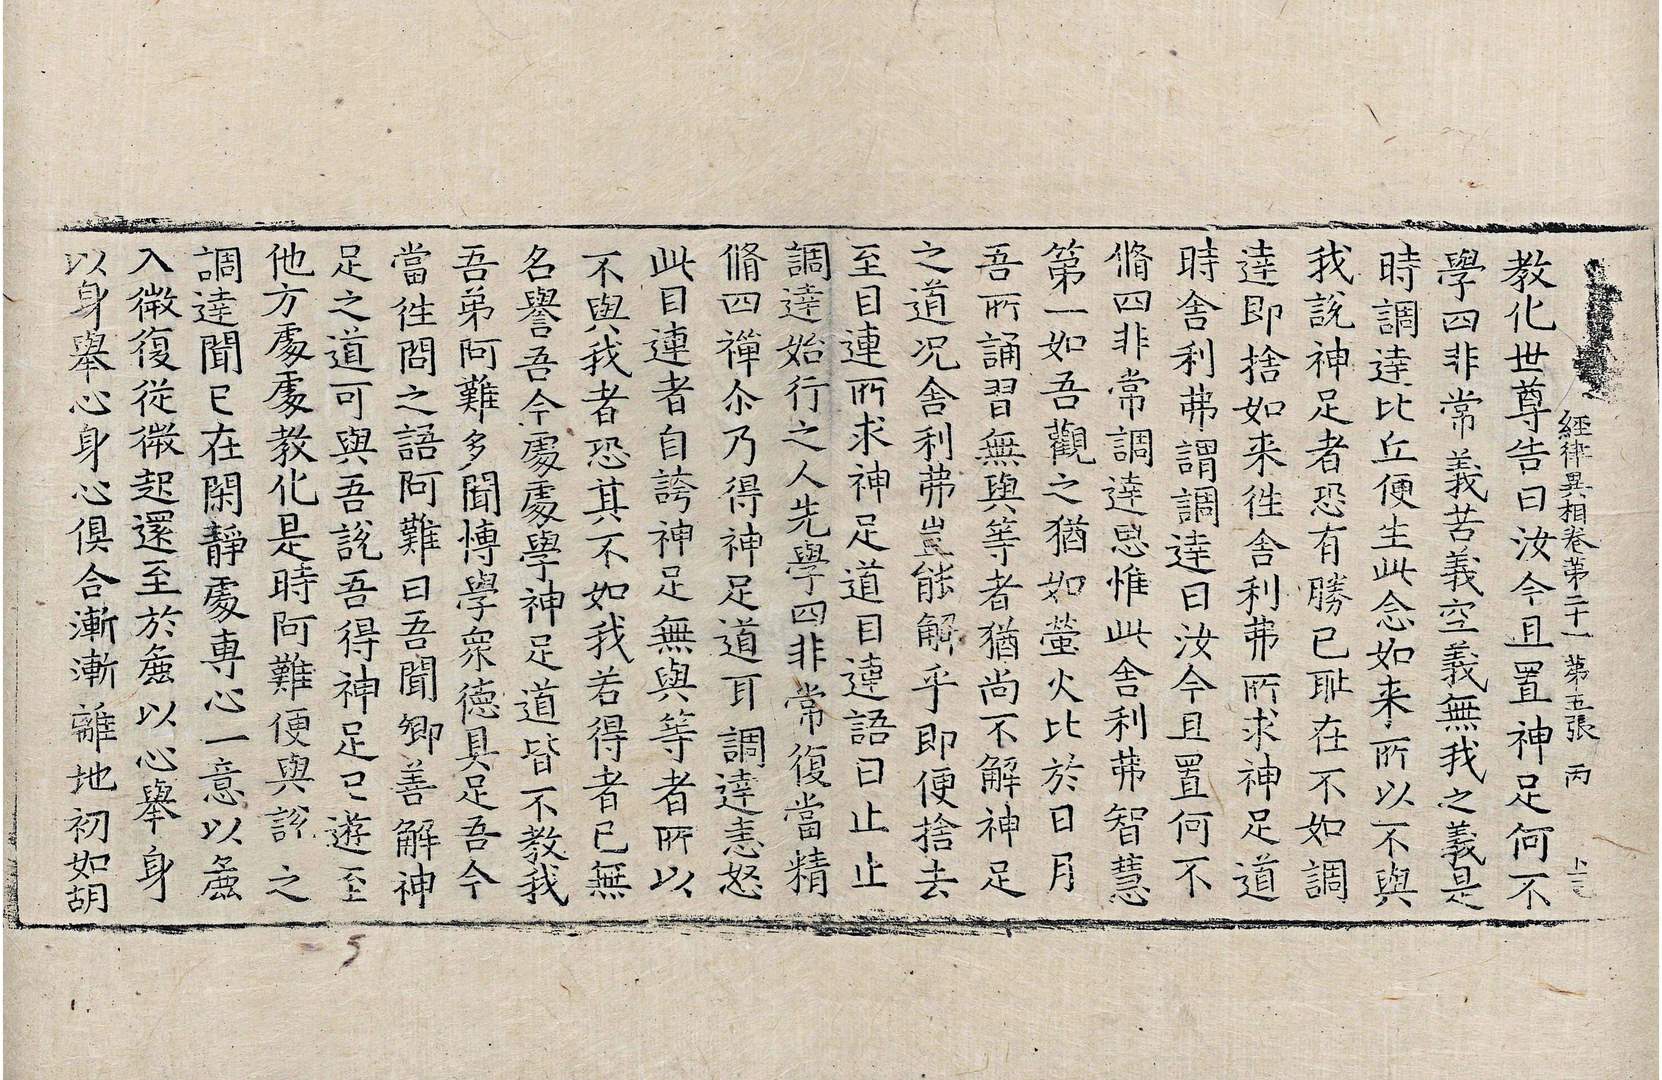 經律異相卷第二十一 第五張 丙
教化世尊告曰汝今且置神足何不
學四非常義苦義空義無我之義是
時調達比丘便生此念如来所以不與
我說神足者恐有勝已耻在不如調
達即捨如来徃舍利弗所求神足道
時舍利弗謂調達曰汝今且置何不
脩四非常調達思惟此舍利弗智慧
第一如吾觀之猶如螢火比於日月
吾所誦習無與等者猶尚不解神足
之道况舍利弗豈能解乎即便捨去
至目連所求神足道目連語曰止止
調達始行之人先學四非常復當精
脩四禪尒乃得神足道耳調達恚怒
此目連者自誇神足無與等者所以
不與我者恐其不如我若得者已無
名譽吾今處處學神足道皆不教我
吾弟阿難多聞博學衆德具足吾今
當徃問之語阿難曰吾聞卿善解神
足之道可與吾說吾得神足已遊至
他方處處教化是時阿難便與說之
調達聞已在閑靜處專心一意以麁
入微復從微起還至於麁以心舉身
以身舉心身心俱合漸漸離地初如胡